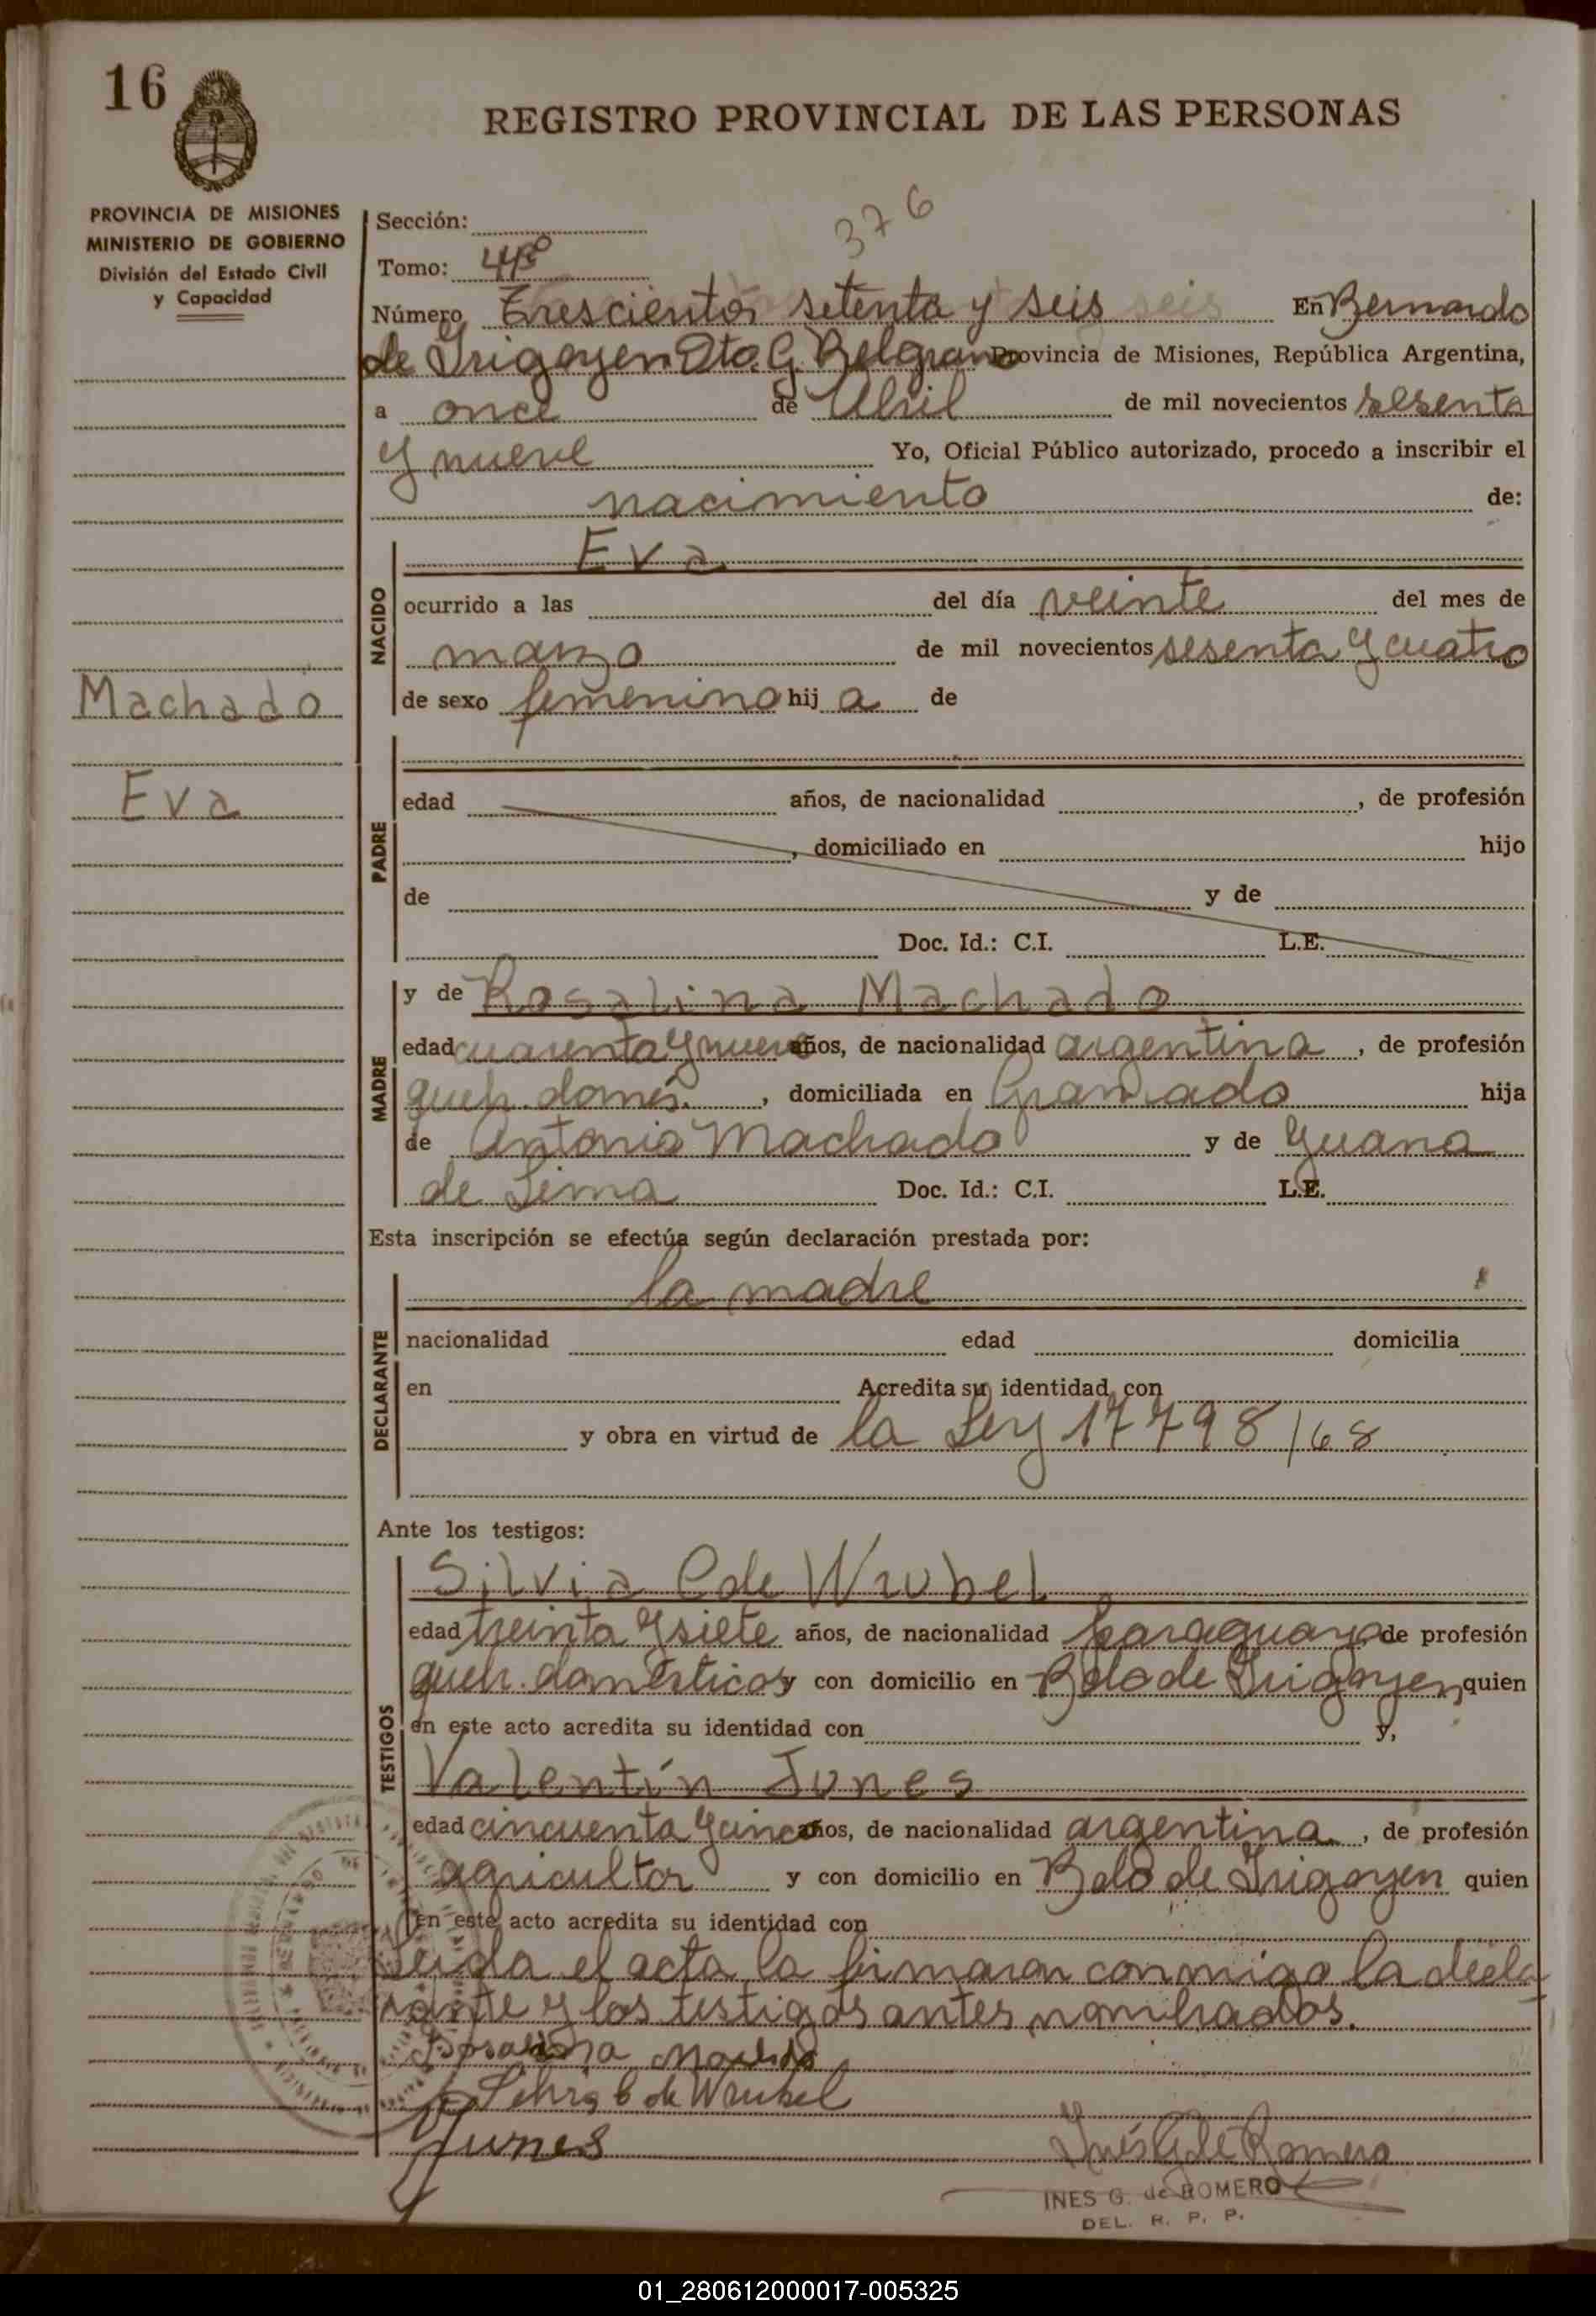 16
REGISTRO PROVINCIAL DE LAS PERSONAS
PROVINCIA DE MISIONES
MINISTERIO DE GOBIERNO
División del Estado Civil
y Capacidad
376
Sección:
Tomo:
Número Trescientos setenta y seis En Bernardo
de Irigoyen Dto. G. Belgrano Provincia de Misiones, República Argentina,
a once de Abril de mil novecientos sesenta
y nueve Yo, Oficial Público autorizado, procedo a inscribir el
nacimiento de:
NACIDO
Eva
ocurrido a las del día veinte del mes de
marzo de mil novecientos sesenta y cuatro
de sexo femenino hij a de
Machado
Eva
PADRE
edad años, de nacionalidad , de profesión
, domiciliado en hijo
de y de
Doc. Id.: C.I. L.E.
MADRE
y de Rosalina Machado
edad cuarenta y nueve años, de nacionalidad argentina , de profesión
queh. domés. , domiciliada en Gramado hija
de Antonio Machado y de Yuana
de Lima Doc. Id.: C.I. L.E.
Esta inscripción se efectúa según declaración prestada por:
DECLARANTE
la madre
nacionalidad edad domicilia
en Acredita su identidad con
y obra en virtud de la Ley 17798/68
Ante los testigos:
TESTIGOS
Silvia C de Wrubel
edad treinta y siete años, de nacionalidad paraguaya de profesión
queh. domésticos y con domicilio en Bdo de Irigoyen quien
en este acto acredita su identidad con y,
Valentín Junes
edad cincuenta y cinco años, de nacionalidad argentina , de profesión
agricultor y con domicilio en Bdo de Irigoyen quien
en este acto acredita su identidad con
Leida el acta la firmaron conmigo la decla
rante y los testigos antes nombrados.
Rosalina Machado
de Wrubel
Junes
Inés G de Romero
INES G. de ROMERO
DEL. R. P. P.
01_280612000017-005325